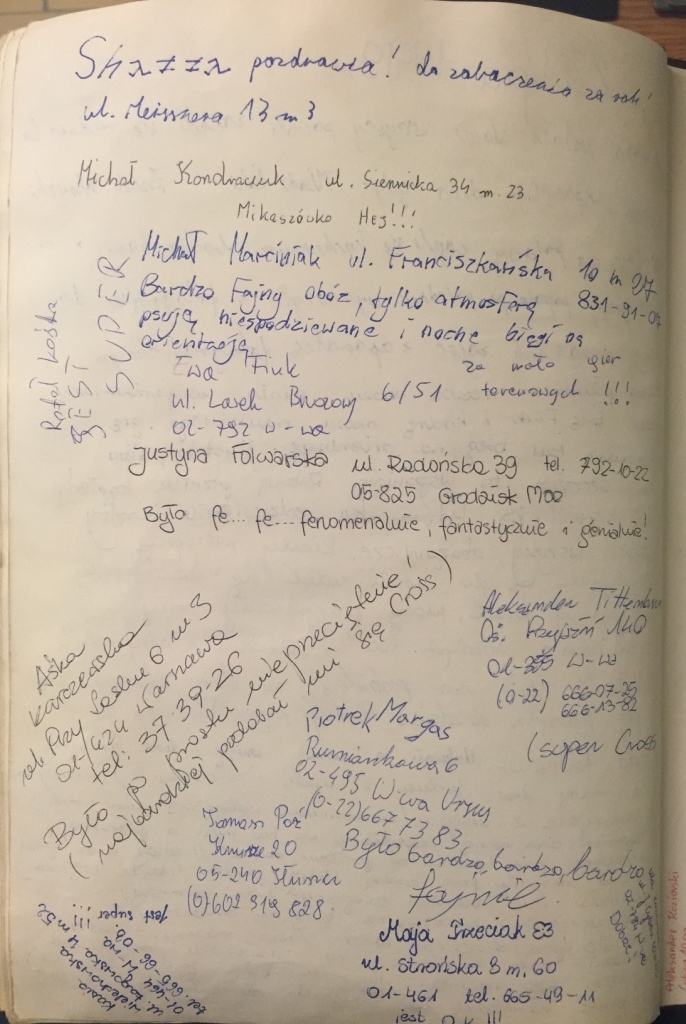 Shazza pozdrawia! do zobaczenia za rok!
ul. Meissnera 13 m 3
Michał Kondraciuk ul. Siennicka 34 m. 23
Mikaszówko Hej!!!
Michał Marciniak ul. Franciszkańska 10 m 27
Bardzo Fajny obóz, tylko atmosferę 831-91-07
psują niespodziewane i nocne biegi na
orientację
Rafał Kośka
JEST
SUPER
Ewa Fiuk za mało gier
ul. Lasek Brzozowy 6/51 terenowych !!!
02-792 W-wa
Justyna Folwarska ul. Radońska 39 tel. 792-10-22
05-825 Grodzisk Maz
Było fe... fe... fenomenalnie, fantastycznie i genialnie!
Aśka
Karczewska
ul. Przy Lasku 6 m 3
01-424 Warszawa
tel: 37-39-26
Było po prostu nieprzeciętnie!
(najbardziej podobał mi się Cross)
Aleksander
Oś. Przyjaźń 140
01-355 W-wa
(0-22) 666-07-25
666-13-82
(super Cross
Piotrek Margas
Rumiankowa 6
02-495 W-wa Ursus
(0-22) 667 73 83
Było bardzo, bardzo, bardzo
fajnie
Tomasz
20
05-240 Tłuszcz
(0) 602 319 828
Kasia
ul. 4 m 52
01-464 W-wa
tel. 666-06-03
jest super !!!
Maja Trzeciak
ul. Strońska 3 m. 60
01-461 tel. 665-49-11
jest O.K!!!
Aleksander